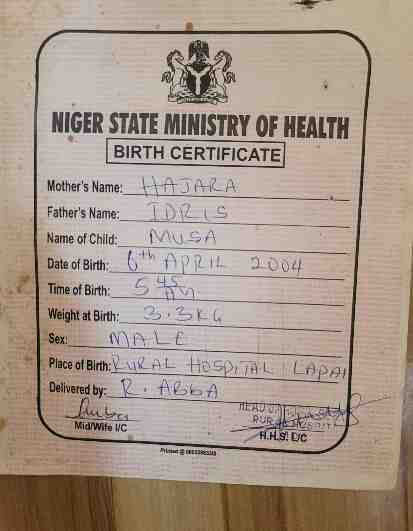 NIGER STATE MINISTRY OF HEALTH
BIRTH CERTIFICATE
Mother's Name: HAJARA
Father's Name: IDRIS
Name of Child: MUSA
Date of Birth: 6th APRIL 2004
Time of Birth: 5 45 AM
Weight at Birth: 3.3KG
Sex: MALE
Place of Birth: RURAL HOSPITAL LAPAI
Delivered by: R. ABBA
Mid/Wife I/C
HEAD OF
RUR
H.H.S. I/C
Printed @